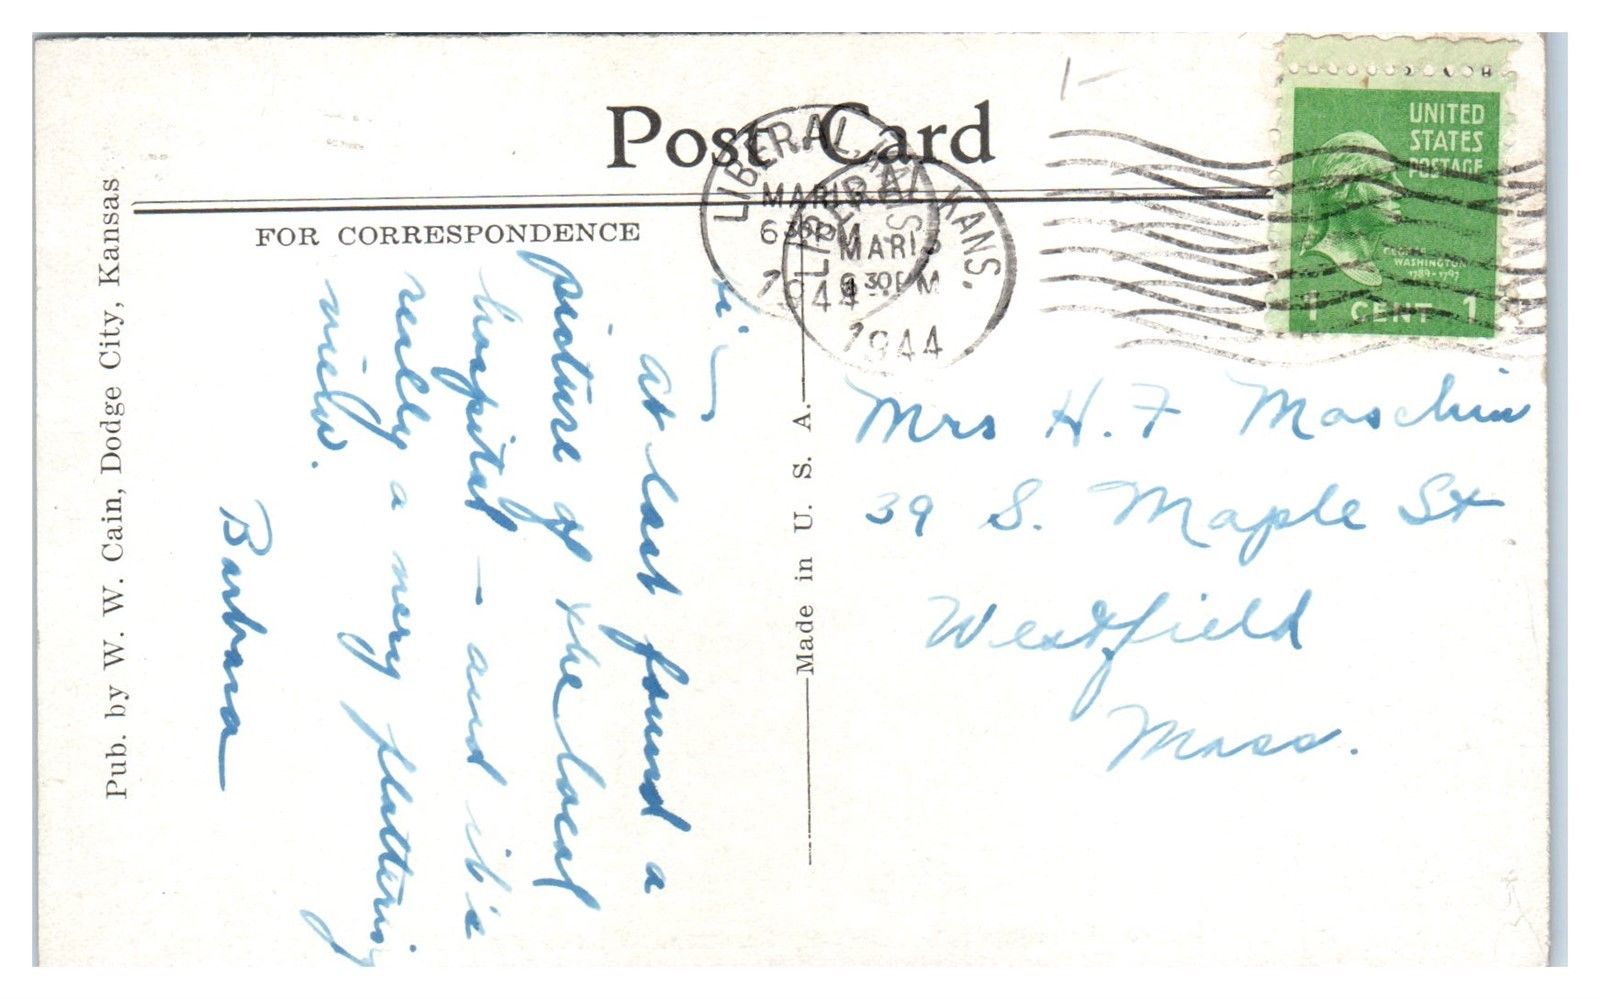 Post Card
FOR CORRESPONDENCE
Pub. by W. W. Cain, Dodge City, Kansas
Made in U. S. A.
LIBERAL, KANS.
MAR 13
6 30 PM
1944
LIBERAL, KANS.
MAR 13
30 PM
1944
UNITED
STATES
POSTAGE
GEORGE
WASHINGTON
1789-1797
1 CENT 1
Hi ~
At last found a
picture of the local
hospital - and it's
really a very flattering
view.
Barbara
Mrs H. F Maschin
39 S. Maple St
Westfield
Mass.